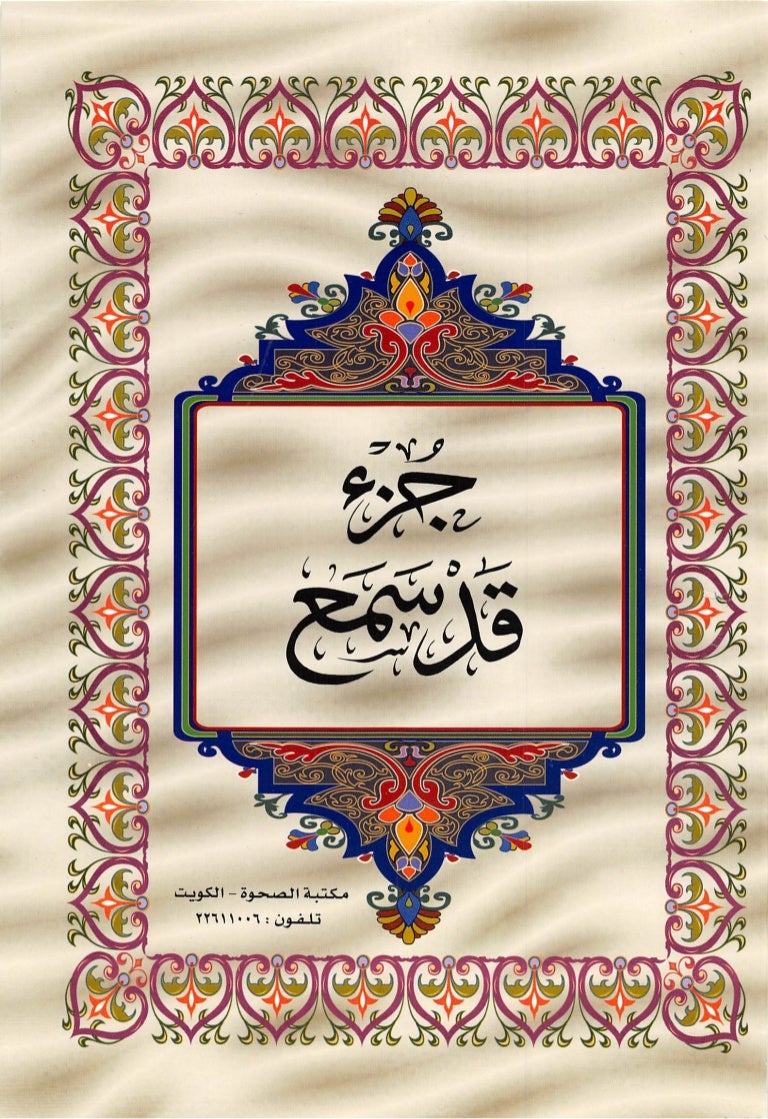 جُزْءٌ
قَدْ سَمِعَ
مكتبة الصحوة - الكويت
تلفون : ٢٢٦١١٠٠٦